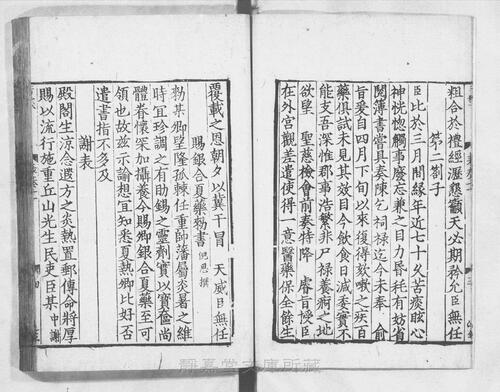 粗合於禮經瀝懇籲天必期矜允臣無任
第二劄子
臣比於三月間緣年近七十久苦痰眩心
神恍惚觸事廢忘兼之目力昏耗有妨省
閱薄書嘗具奏陳乞祠祿迄今未奉 俞
旨爰自四月下旬以來復得欬嗽之疾百
藥俱試未見其效日今飲食日減委實不
能支吾深惟郡事浩繁非尸祿養痾之地
欲望 聖慈檢會前奏特降 睿旨授臣
在外宮觀差遣使得一意醫藥保全餘生
覆載之恩朝夕以冀干冒 天威臣無任
賜銀合夏藥勑書 倪思撰
勑某卿望隆孤棘任重師藩屬炎暑之維
時宜珍調之有助錫之靈劑實以寶奩尚
體眷懷深加攝養今賜卿銀合夏藥至可
領也故茲示諭想宜知悉夏熱卿比好否
遣書指不多及
謝表
殿閣生涼念遐方之炎熱置郵傳命將厚
賜以流行施重丘山光生民吏臣某 中謝
靜嘉堂文庫所藏